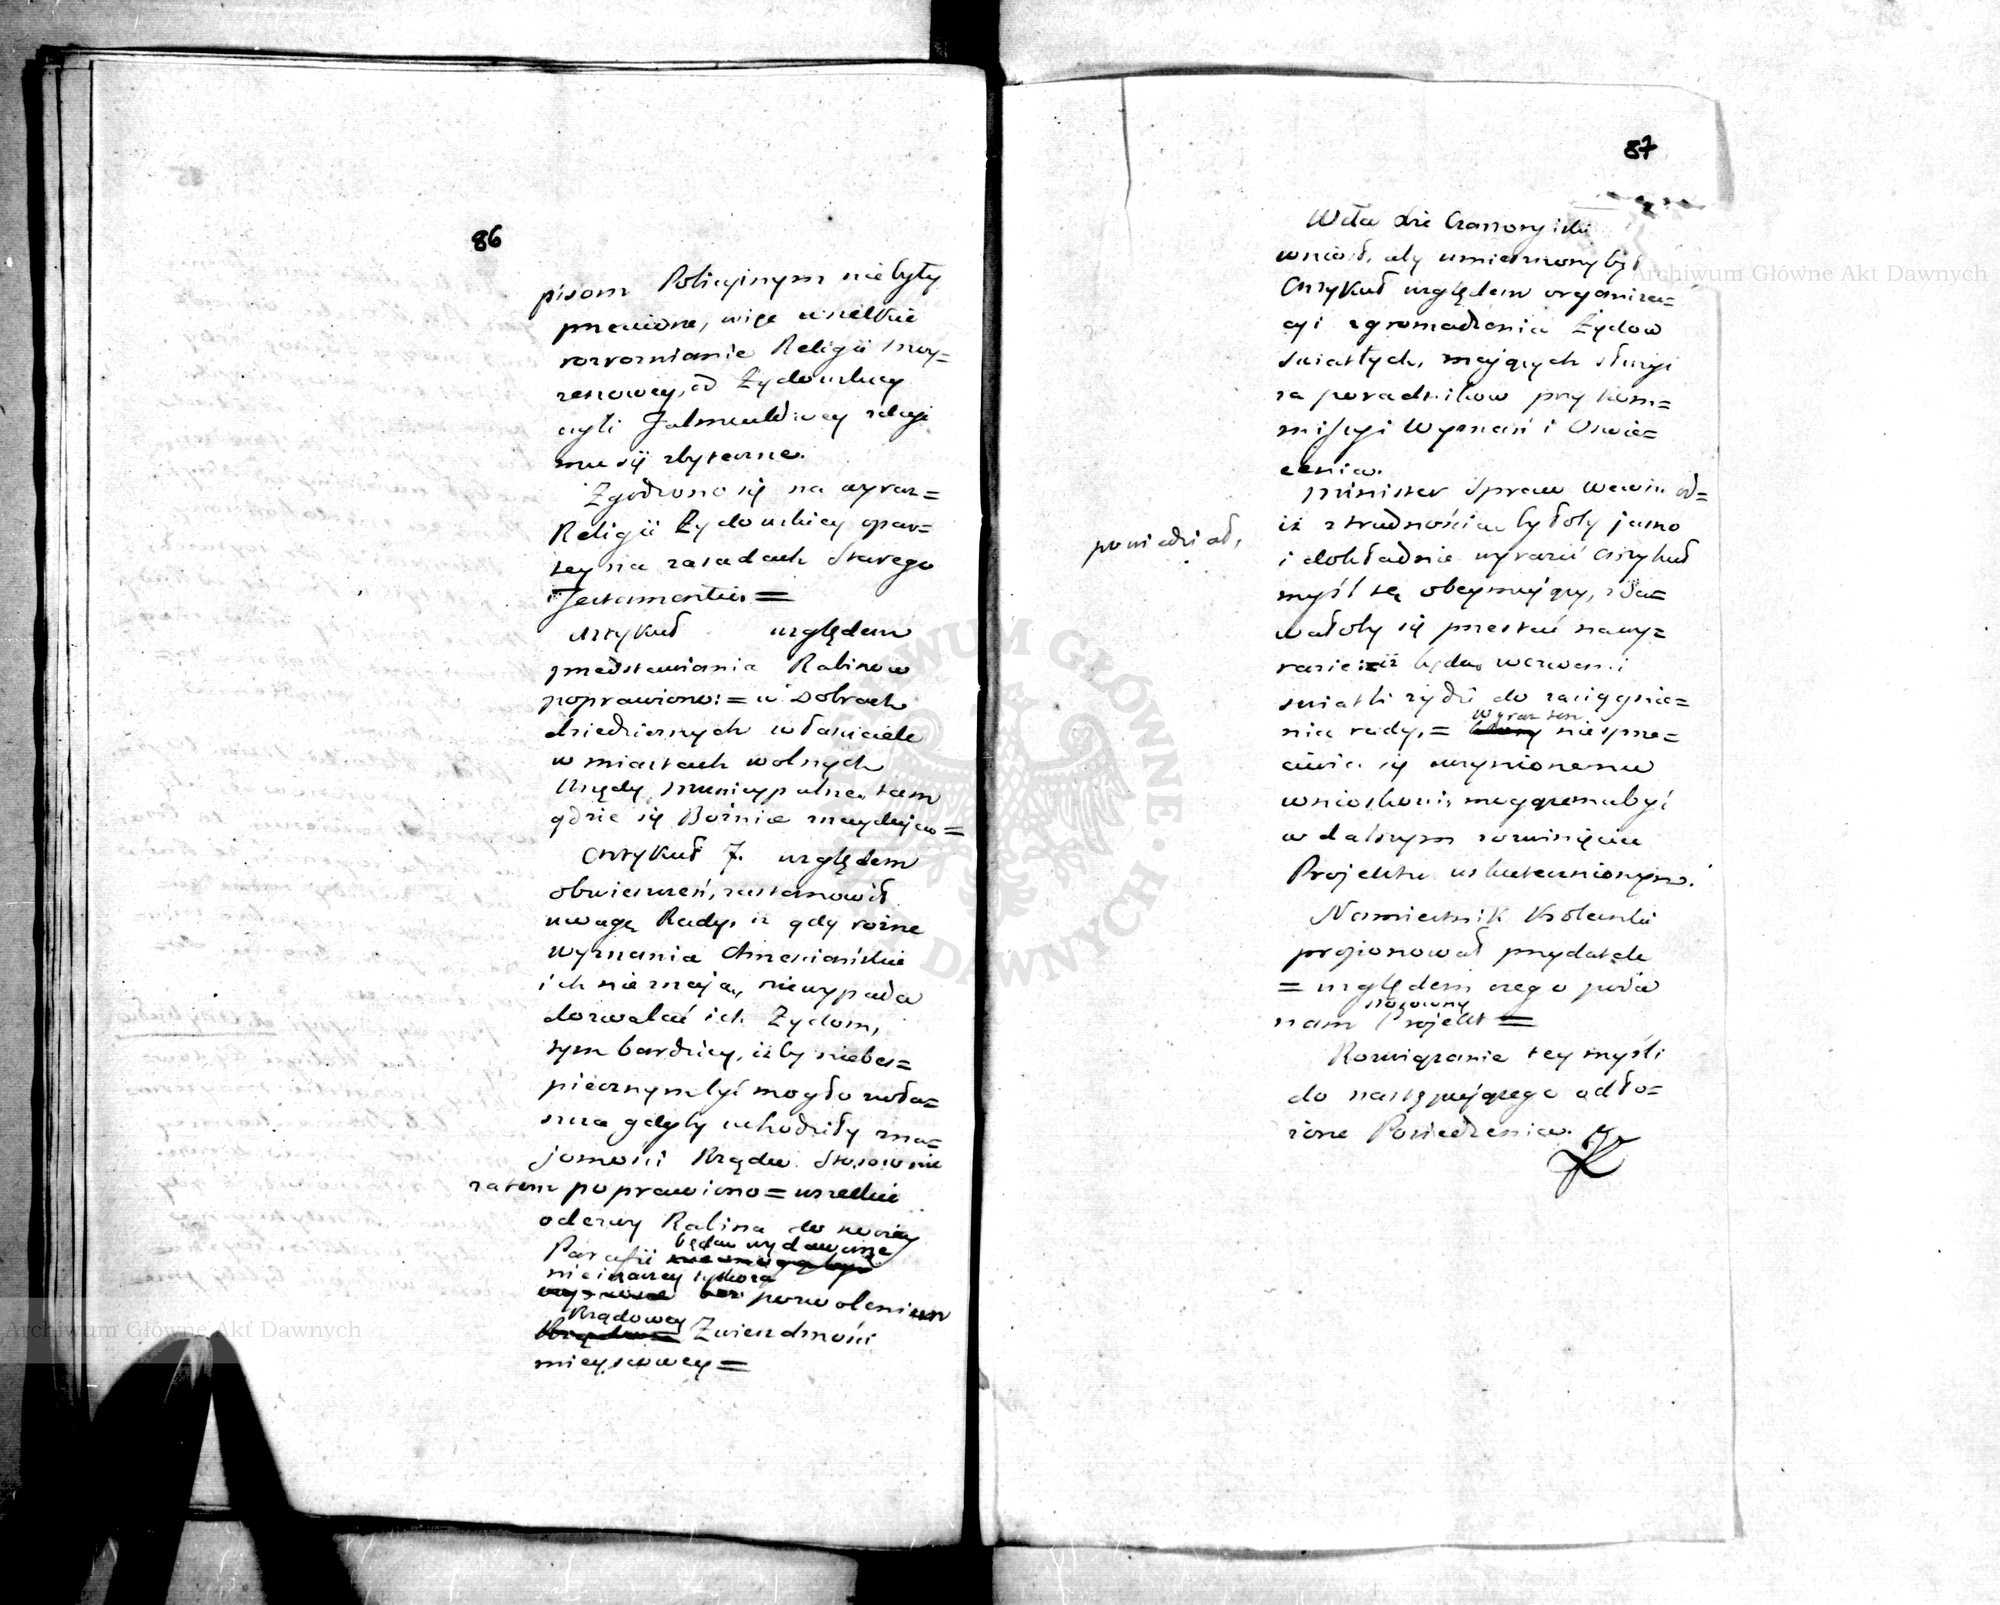 86
pisom Policyinym nie były
przeciwne, więc wszelkie
rozroznianie Religii Moy-
zeszowey, od Żydowskiey
czyli Talmudowey zdaje
mu się zbyteczne.
Zgodzono się na wyraz =
Religii Żydowskiey opar=
tey na zasadach Starego
Testamentu. =
Artykuł względem
przedstawiania Rabinow
poprawiono: = w Dobrach
dziedzicznych właściciele
w miastach wolnych
Urzędy Municypalne, tam
gdzie się Bożnice znayduią =
Artykuł 7. względem
obwieszczeń, zastanowił
uwagę Rady, iż gdy rożne
wyznania Chrześciańskie
ich nie maią, niewypada
dozwalać ich Żydom,
tym bardziey, iżby niebes=
piecznym być mogło zwła=
szcza gdyby uchodziły zna=
jomości Rządu. Stosownie
zatem poprawiono = wszelkie
odezwy Rabina do swoiey
będą wydawane
Parafii
nieinaczey tylko za
pozwoleniem
Rządowey
Zwierzchności
mieyscowey =
87
Wda Xże Czartoryiski
wniosł, aby umieszczony był
Artykuł względem organiza=
cyi zgromadzenia Żydow
światłych, maiących służyć
za poradnikow przy Kom=
missyi Wyznań i Oswie=
cenia.
Minister Spraw Wewn. od=
powiedział,
iż z trudnością byłoby jasno
i dokładnie wyrazić Artykuł
myśl tę obeymuiący, zda=
wałoby się przestać na wy=
razie: iż będą wezwani
światli żydzi do zasiągnie=
nia rady, =
wyraz ten
nie sprze=
ciwia się uczynionemu
wnioskowi, mogącemu być
w dalszym rozwinięciu
Projektu uskutecznionym.
Namiestnik Krolewski
proponował przydatek
= względem czego poda
stosowny
nam Projekt =
Rozwiązanie tey myśli
do następuiącego odło=
żone Posiedzenia.
Archiwum Główne Akt Dawnych
Archiwum Główne Akt Dawnych
ARCHIWUM GŁÓWNE AKT DAWNYCH